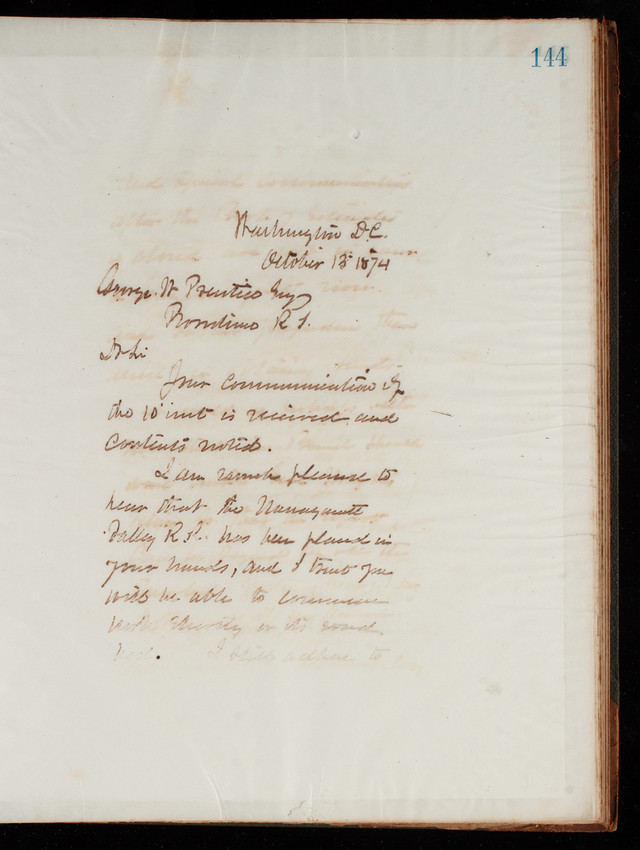 144
Washington D.C.
October 13th 1874
George W Prentice Esq
Providence R I.
Dr Sir
Your communication of
the 10th inst is received and
contents noted.
I am much please to
hear that the Narragansett
Valley R.R. has been placed in
your hands, and I trust you
will be able to commence
work shortly on its road
bed. I still adhere to